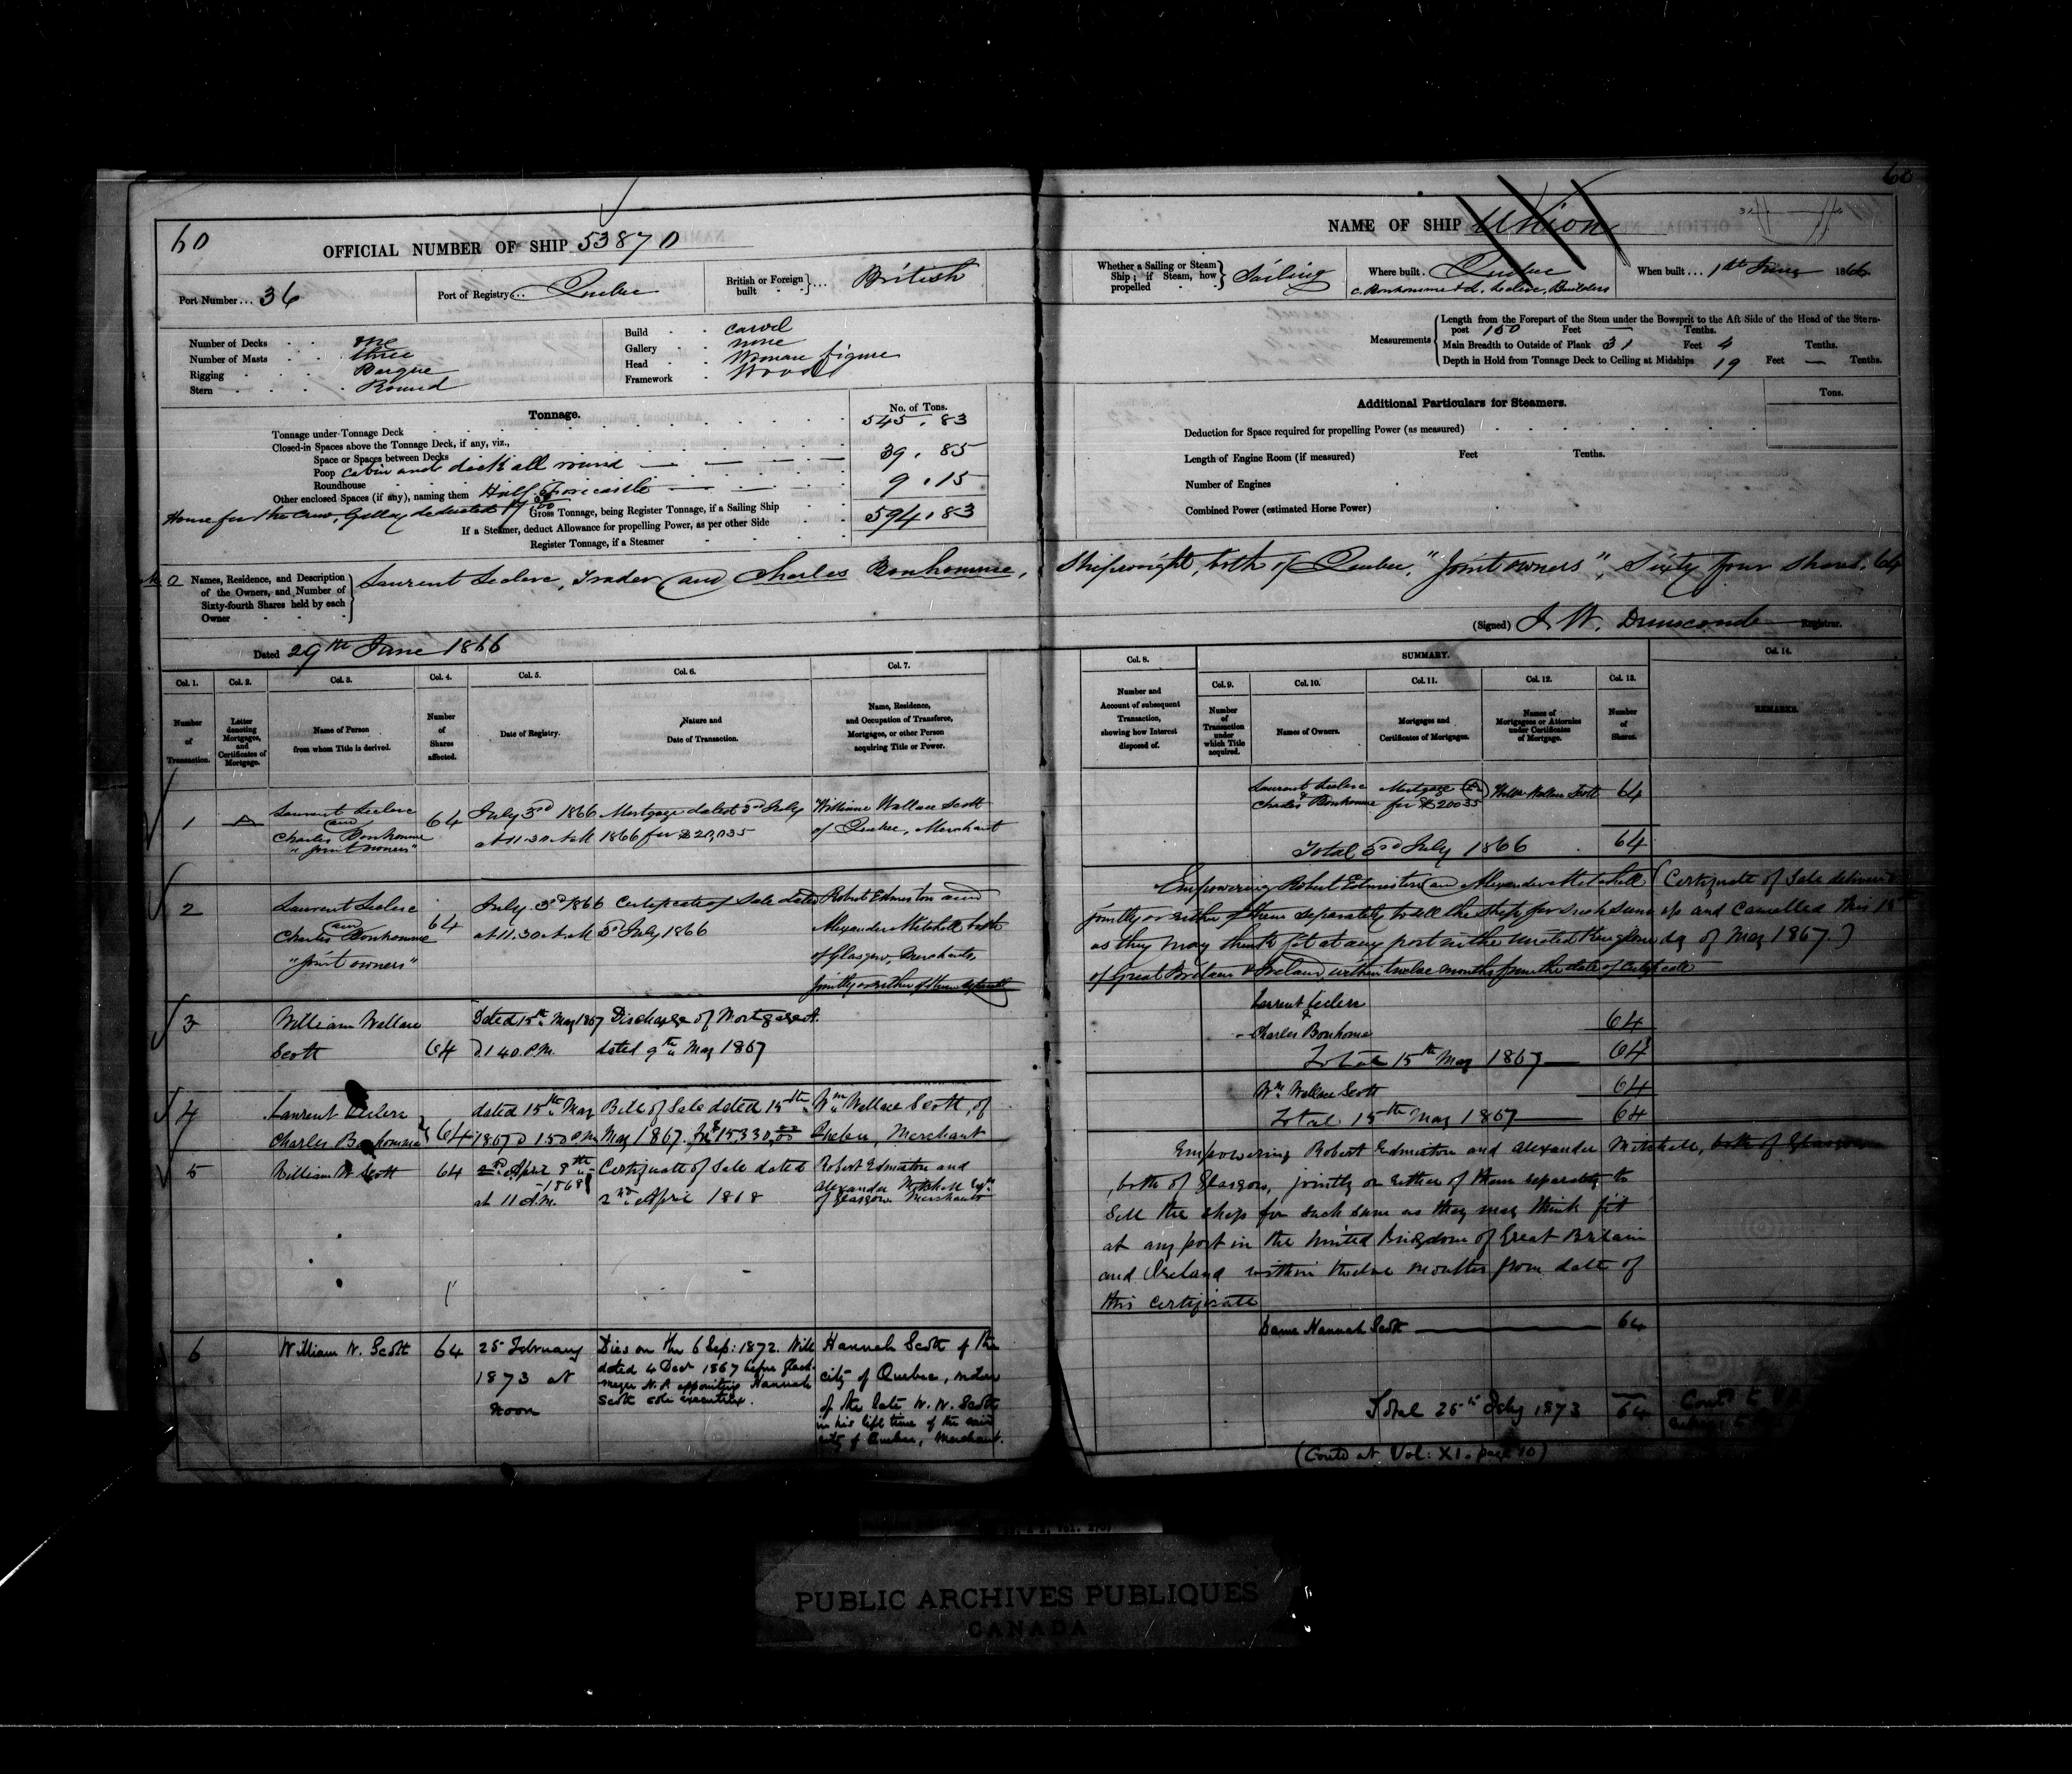 60
OFFICIAL NUMBER OF SHIP 53870
Port Number... 36
Port of Registry... Quebec
British or Foreign built ... British
Number of Decks one
Number of Masts three
Rigging Barque
Stern Round
Build carvel
Gallery none
Head Woman figure
Framework Wood
Tonnage.
No. of Tons.
Tonnage under Tonnage Deck 545.83
Closed-in Spaces above the Tonnage Deck, if any, viz.,
Space or Spaces between Decks
Poop cabin and deck all round 39.85
Roundhouse
Other enclosed Spaces (if any), naming them Half Forecastle 9.15
House for the Crew, Galley deducted
Gross Tonnage, being Register Tonnage, if a Sailing Ship 594.83
If a Steamer, deduct Allowance for propelling Power, as per other Side
Register Tonnage, if a Steamer
Names, Residence, and Description of the Owners, and Number of Sixty-fourth Shares held by each Owner
Laurent Leclerc, Trader and Charles Bonhomme,
Dated 29th June 1866
Col. 1. Col. 2. Col. 3. Col. 4. Col. 5. Col. 6. Col. 7.
Number of Transaction.
Letter denoting Mortgages, and Certificates of Mortgage.
Name of Person from whom Title is derived.
Number of Shares affected.
Date of Registry.
Nature and Date of Transaction.
Name, Residence, and Occupation of Transferee, Mortgagee, or other Person acquiring Title or Power.
1 A Laurent Leclerc and Charles Bonhomme "joint owners" 64
July 3rd 1866 at 11.30 A.M
Mortgage dated 3rd July 1866 for $20,035
William Wallace Scott of Quebec, Merchant
2 Laurent Leclerc and Charles Bonhomme "joint owners" 64
July 3rd 1866 at 11.30 A.M
Certificate of Sale dated 3rd July 1866
Robert Edmiston and Alexander Mitchell both of Glasgow, Merchants, jointly or either of them separately
3 William Wallace Scott 64
Dated 15th May 1867 @ 1 40 P.M.
Discharge of Mortgage A. dated 9th May 1867
4 Laurent Leclerc Charles Bonhomme 64
dated 15th May 1867 @ 1.50 P.M
Bill of Sale dated 15th May 1867. for $15.330.00
Wm Wallace Scott, of Quebec, Merchant
5 William W. Scott 64
2nd April 8th 1868 at 11 A.M.
Certificate of Sale dated 2nd April 1868
Robert Edmiston and Alexander Mitchell of Glasgow Merchants
6 William W. Scott 64
25 February 1873 at Noon
Dies on the 6 Sep: 1872. Will dated 4 Decr 1867 before N.P. appointing Hannah Scott sole executrix.
Hannah Scott of the city of Quebec, widow of the late W. W. Scott in his life time of the said city of Quebec, Merchant.
60
NAME OF SHIP Union
Whether a Sailing or Steam Ship; if Steam, how propelled Sailing
Where built. Quebec
C. Bonhomme & L. Leclerc, Builders
When built ... 1st June 1866
Measurements
Length from the Forepart of the Stem under the Bowsprit to the Aft Side of the Head of the Stern-
post 150 Feet — Tenths.
Main Breadth to Outside of Plank 31 Feet 4 Tenths.
Depth in Hold from Tonnage Deck to Ceiling at Midships 19 Feet — Tenths.
Additional Particulars for Steamers.
Tons.
Deduction for Space required for propelling Power (as measured)
Length of Engine Room (if measured) Feet Tenths.
Number of Engines
Combined Power (estimated Horse Power)
Shipwright, both of Quebec, "Joint owners", Sixty four shares. 64
(Signed) J. W. Dunscomb Registrar.
SUMMARY.
Col. 8. Col. 9. Col. 10. Col. 11. Col. 12. Col. 13. Col. 14.
Number and Account of subsequent Transaction, showing how Interest disposed of.
Number of Transaction under which Title acquired.
Names of Owners.
Mortgages and Certificates of Mortgages.
Names of Mortgagees or Attornies under Certificates of Mortgage.
Number of Shares.
REMARKS.
Laurent Leclerc & Charles Bonhomme Mortgage (A) for $20035 Willm Wallace Scott 64
Total 3rd July 1866 64
Empowering Robert Edmiston and Alexander Mitchell
jointly or either of them separately to sell the ship for such sum
as they may think fit at any port in the United Kingdom
of Great Britain & Ireland within twelve months from the date of Certificate
(Certificate of Sale delivered up and Cancelled this 15th day of May 1867.)
Laurent Leclerc & Charles Bonhome 64
Total 15th May 1867 64
Wm Wallace Scott 64
Total 15th May 1867 64
Empowering Robert Edmiston and Alexander Mitchell, both of Glasgow
, both of Glasgow, jointly or either of them separately to
sell the ship for such sum as they may think fit
at any port in the United Kingdom of Great Britain
and Ireland within twelve months from date of
this certificate
Dame Hannah Scott 64
Total 25th Feby 1873 64
(Contd at Vol: XI. page 10)
PUBLIC ARCHIVES PUBLIQUES
CANADA